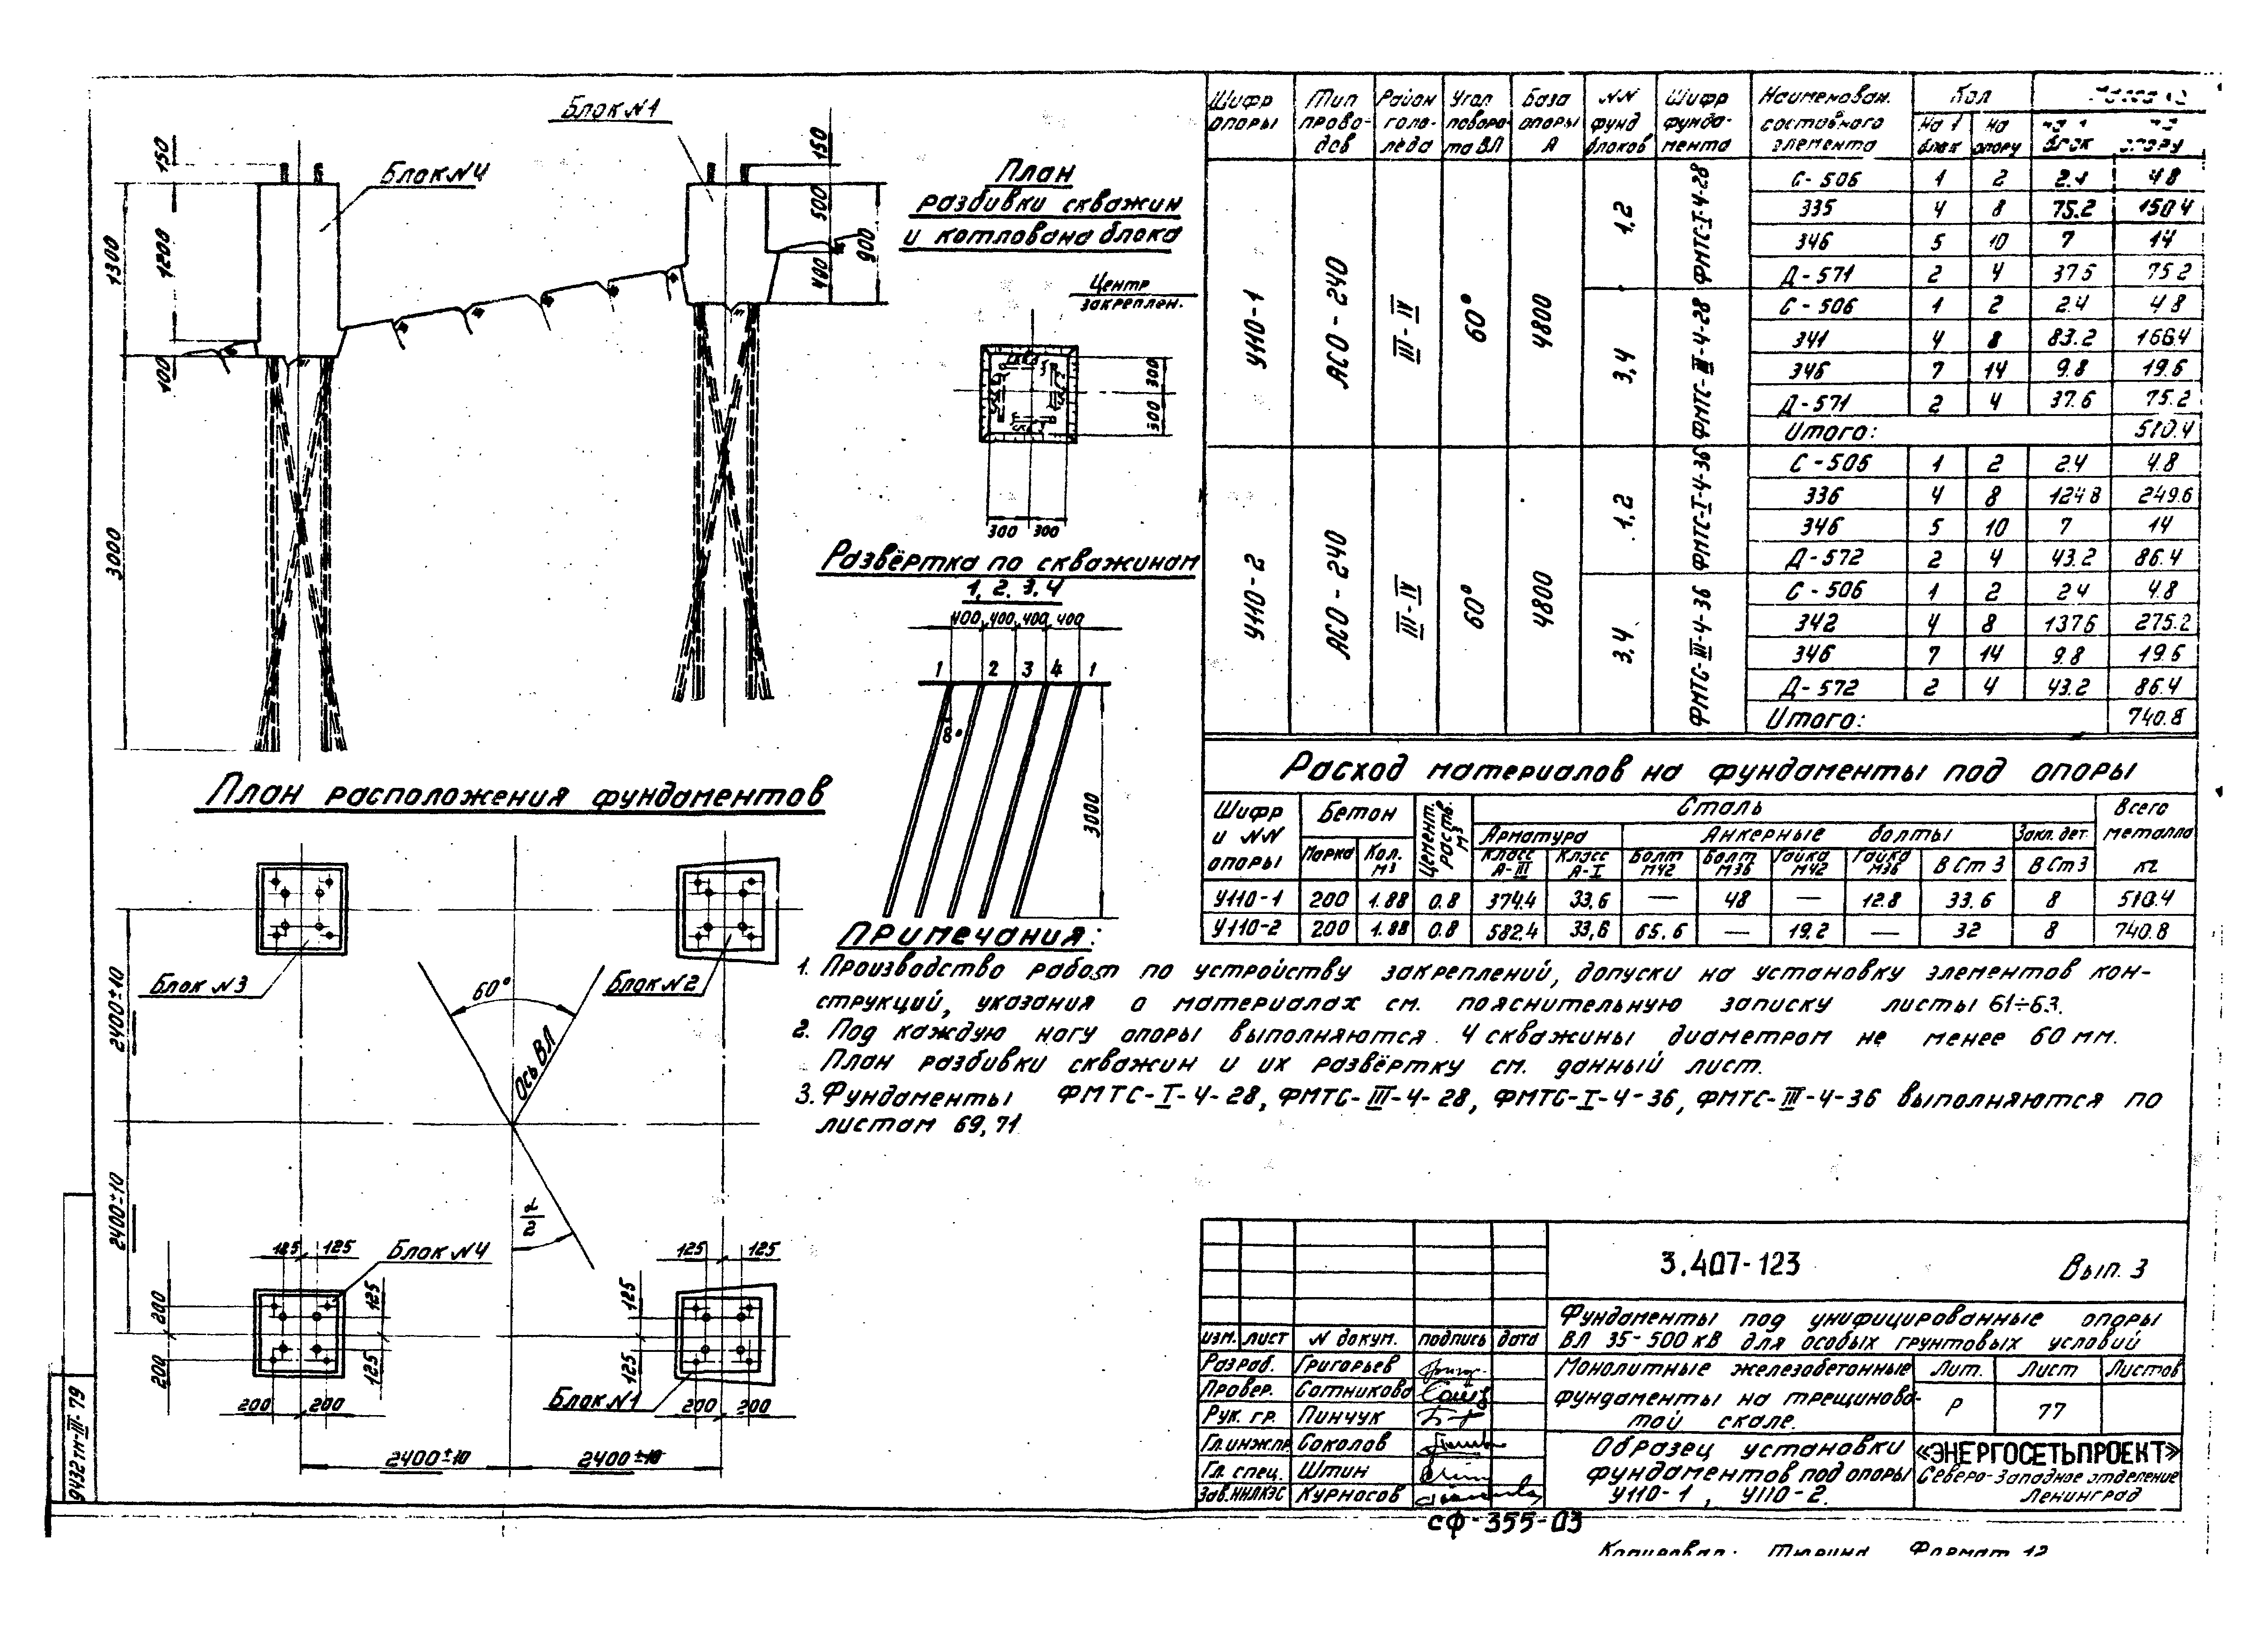 Блок N1
Блок N4
150
1300
1200
100
3000
150
500
400
900
План
разбивки скважин
и котлована блока
Центр
закреплен.
300 300
300 300
Развёртка по скважинам
1, 2, 3, 4
400 400 400 400
1 2 3 4 1
8°
3000
План расположения фундаментов
Блок N3
Блок N2
60°
Ось ВЛ
α/2
2400±10
2400±10
125 125
Блок N4
200
200
125
125
200 200
125 125
125
125
Блок N1
200 200
2400±10 2400±10
Шифр опоры | Тип проводов | Район гололёда | Угол поворота ВЛ | База опоры А | NN фунд блоков | Шифр фундамента | Наименован. составного элемента | Кол | Масса
На 1 блок | На опору | блок | опору
У110-1 | АСО-240 | III-IV | 60° | 4800
1,2 | ФМТС-I-4-28
С-506 | 1 | 2 | 2.4 | 4.8
335 | 4 | 8 | 75.2 | 150.4
346 | 5 | 10 | 7 | 14
Д-571 | 2 | 4 | 37.6 | 75.2
3,4 | ФМТС-III-4-28
С-506 | 1 | 2 | 2.4 | 4.8
341 | 4 | 8 | 83.2 | 166.4
346 | 7 | 14 | 9.8 | 19.6
Д-571 | 2 | 4 | 37.6 | 75.2
Итого: 510.4
У110-2 | АСО-240 | III-IV | 60° | 4800
1,2 | ФМТС-I-4-36
С-506 | 1 | 2 | 2.4 | 4.8
336 | 4 | 8 | 124.8 | 249.6
346 | 5 | 10 | 7 | 14
Д-572 | 2 | 4 | 43.2 | 86.4
3,4 | ФМТС-III-4-36
С-506 | 1 | 2 | 2.4 | 4.8
342 | 4 | 8 | 137.6 | 275.2
346 | 7 | 14 | 9.8 | 19.6
Д-572 | 2 | 4 | 43.2 | 86.4
Итого: 740.8
Расход материалов на фундаменты под опоры
Шифр и NN опоры | Бетон | Цемент. раств. м3 | Сталь | Всего металла кг
Арматура | Анкерные болты | Закл. дет.
Марка | Кол. м3 | Класс А-III | Класс А-I | Болт М42 | Болт М36 | Гайка М42 | Гайка М36 | В Ст 3 | В Ст 3
У110-1 | 200 | 1.88 | 0.8 | 374.4 | 33,6 | — | 48 | — | 12.8 | 33.6 | 8 | 510.4
У110-2 | 200 | 1.88 | 0.8 | 582.4 | 33,6 | 65.6 | — | 19.2 | — | 32 | 8 | 740.8
Примечания:
1. Производство работ по устройству закреплений, допуски на установку элементов кон-
струкций, указания о материалах см. пояснительную записку листы 61÷63.
2. Под каждую ногу опоры выполняются 4 скважины диаметром не менее 60 мм.
План разбивки скважин и их развёртку см. данный лист.
3. Фундаменты ФМТС-I-4-28, ФМТС-III-4-28, ФМТС-I-4-36, ФМТС-III-4-36 выполняются по
листам 69, 71
3.407-123 Вып. 3
Фундаменты под унифицированные опоры
ВЛ 35-500 кВ для особых грунтовых условий
изм. лист N докум. подпись дата
Разраб. Григорьев
Провер. Сотникова
Рук. гр. Пинчук
Гл.инж.пр. Соколов
Гл. спец. Штин
Зав.НИЛКЭС Курносов
Монолитные железобетонные
фундаменты на трещинова-
той скале.
Лит. Лист Листов
Р 77
Образец установки
фундаментов под опоры
У110-1, У110-2.
«ЭНЕРГОСЕТЬПРОЕКТ»
Северо-Западное отделение
Ленинград
9432тм-III-79
СФ-355-03
Копировал: Тюрина Формат 12